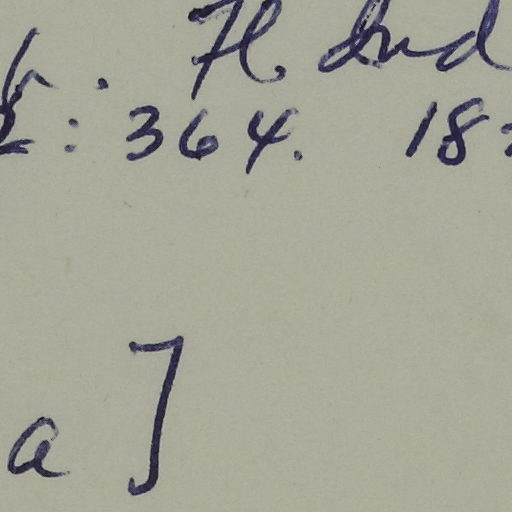 . Fl. Ind
: 364. 18
a ]